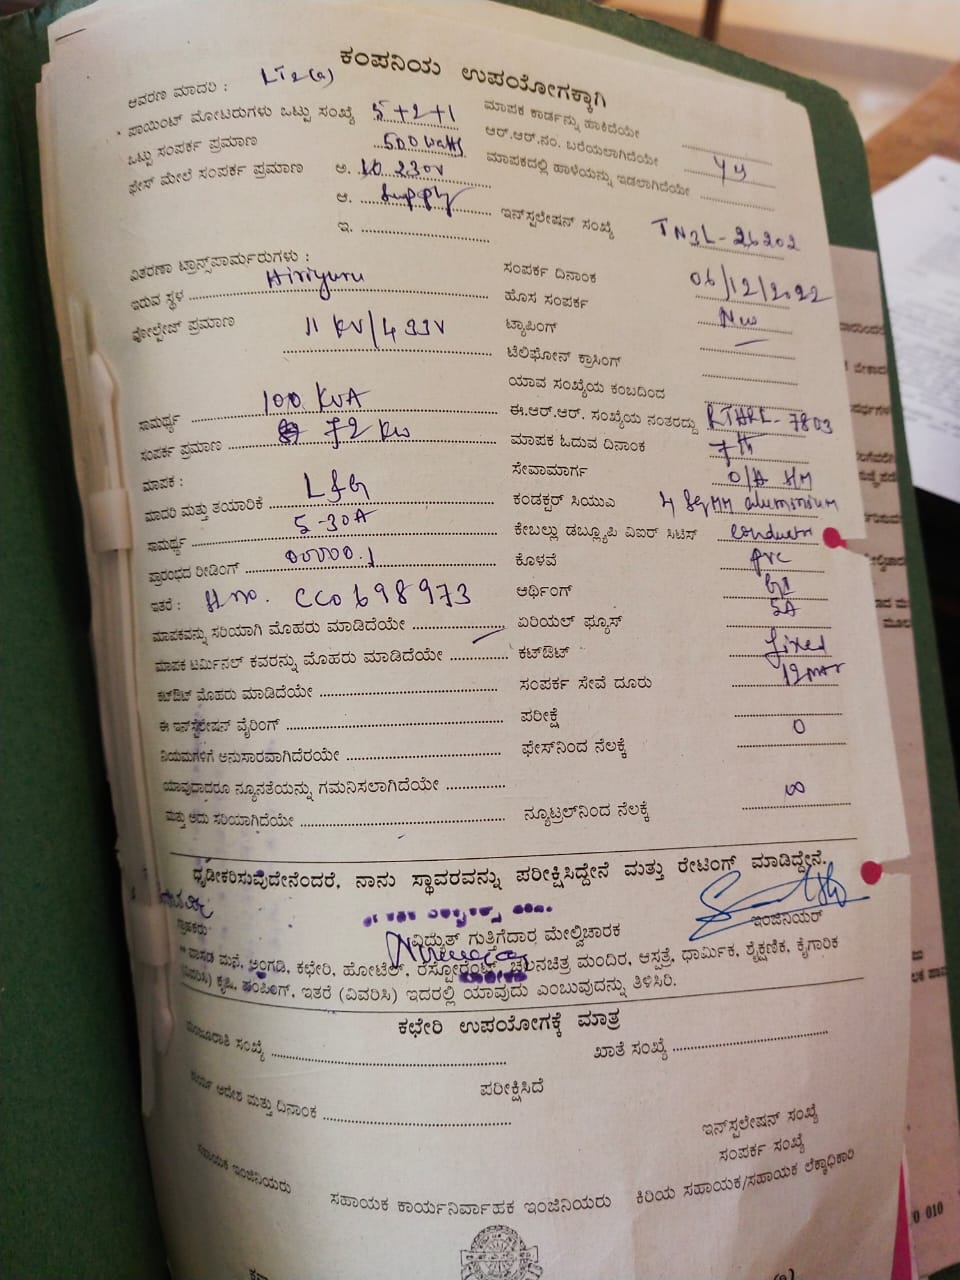 ಕಂಪನಿಯ ಉಪಯೋಗಕ್ಕಾಗಿ
ಆವರಣ ಮಾದರಿ : LT2(a)
ಮಾಪಕ ಕಾರ್ಡನ್ನು ಹಾಕಿದೆಯೇ
ಪಾಯಿಂಟ್ ಮೋಟರುಗಳು ಒಟ್ಟು ಸಂಖ್ಯೆ 5+2+1
ಆರ್.ಆರ್.ನಂ. ಬರೆಯಲಾಗಿದೆಯೇ
ಒಟ್ಟು ಸಂಪರ್ಕ ಪ್ರಮಾಣ 500 watts
ಮಾಪಕದಲ್ಲಿ ಹಾಳೆಯನ್ನು ಇಡಲಾಗಿದೆಯೇ
ಫೇಸ್ ಮೇಲೆ ಸಂಪರ್ಕ ಪ್ರಮಾಣ ಅ. 230V
ಆ. Supply
ಇನ್‌ಸ್ಟಲೇಷನ್ ಸಂಖ್ಯೆ TN2L-26202
ಇ.
ವಿತರಣಾ ಟ್ರಾನ್ಸ್‌ಪಾರ್ಮರುಗಳು :
ಇರುವ ಸ್ಥಳ Hiriyuru
ಸಂಪರ್ಕ ದಿನಾಂಕ 06/12/2022
ಹೊಸ ಸಂಪರ್ಕ New
ವೋಲ್ಟೇಜ್ ಪ್ರಮಾಣ 11 KV/433V
ಟ್ಯಾಪಿಂಗ್
ಟೆಲಿಫೋನ್ ಕ್ರಾಸಿಂಗ್
ಯಾವ ಸಂಖ್ಯೆಯ ಕಂಬದಿಂದ
ಸಾಮರ್ಥ್ಯ 100 KVA
ಈ.ಆರ್.ಆರ್. ಸಂಖ್ಯೆಯ ನಂತರದ್ದು 7803
ಸಂಪರ್ಕ ಪ್ರಮಾಣ 72 Kw
ಮಾಪಕ ಓದುವ ದಿನಾಂಕ 7th
ಮಾಪಕ :
ಸೇವಾಮಾರ್ಗ O/H
ಮಾದರಿ ಮತ್ತು ತಯಾರಿಕೆ L&G
ಕಂಡಕ್ಟರ್ ಸಿಯುಎ 4 SqMM aluminium
ಸಾಮರ್ಥ್ಯ 5-30A
ಕೇಬಲ್ಲು ಡಬ್ಲ್ಯೂಪಿ ವಿಐರ್ ಸಿಟಿಸ್ conductor
ಪ್ರಾರಂಭದ ರೀಡಿಂಗ್ 00000.1
ಕೊಳವೆ pvc
ಇತರೆ : Sl no. CC0698973
ಆರ್ಥಿಂಗ್ GI
ಮಾಪಕವನ್ನು ಸರಿಯಾಗಿ ಮೊಹರು ಮಾಡಿದೆಯೇ
ಏರಿಯಲ್ ಫ್ಯೂಸ್ 5A
ಮಾಪಕ ಟರ್ಮಿನಲ್ ಕವರನ್ನು ಮೊಹರು ಮಾಡಿದೆಯೇ
ಕಟ್‌ಔಟ್ fixed
ಕಟ್‌ಔಟ್ ಮೊಹರು ಮಾಡಿದೆಯೇ
ಸಂಪರ್ಕ ಸೇವೆ ದೂರು 12 mtr
ಈ ಇನ್‌ಸ್ಟಲೇಷನ್ ವೈರಿಂಗ್
ಪರೀಕ್ಷೆ
ನಿಯಮಗಳಿಗೆ ಅನುಸಾರವಾಗಿದೆರಯೇ
ಫೇಸ್‌ನಿಂದ ನೆಲಕ್ಕೆ 0
ಯಾವುದಾದರೂ ನ್ಯೂನತೆಯನ್ನು ಗಮನಿಸಲಾಗಿದೆಯೇ
ಮತ್ತು ಅದು ಸರಿಯಾಗಿದೆಯೇ
ನ್ಯೂಟ್ರಲ್‌ನಿಂದ ನೆಲಕ್ಕೆ ∞
ಧೃಡೀಕರಿಸುವುದೇನೆಂದರೆ, ನಾನು ಸ್ಥಾವರವನ್ನು ಪರೀಕ್ಷಿಸಿದ್ದೇನೆ ಮತ್ತು ರೇಟಿಂಗ್ ಮಾಡಿದ್ದೇನೆ.
ಗ್ರಾಹಕರು
ವಿದ್ಯುತ್ ಗುತ್ತಿಗೆದಾರ ಮೇಲ್ವಿಚಾರಕ
ಇಂಜಿನಿಯರ್
** ವಾಸದ ಮನೆ, ಅಂಗಡಿ, ಕಛೇರಿ, ಹೋಟೆಲ್, ರೆಸ್ಟೋರೆಂಟ್, ಚಲನಚಿತ್ರ ಮಂದಿರ, ಆಸ್ಪತ್ರೆ, ಧಾರ್ಮಿಕ, ಶೈಕ್ಷಣಿಕ, ಕೈಗಾರಿಕ
(ವಿವರಿಸಿ) ಕೃಷಿ, ಪಂಪಿಂಗ್, ಇತರೆ (ವಿವರಿಸಿ) ಇದರಲ್ಲಿ ಯಾವುದು ಎಂಬುವುದನ್ನು ತಿಳಿಸಿರಿ.
ಕಛೇರಿ ಉಪಯೋಗಕ್ಕೆ ಮಾತ್ರ
ಮಂಜೂರಾತಿ ಸಂಖ್ಯೆ
ಖಾತೆ ಸಂಖ್ಯೆ
ಪರೀಕ್ಷಿಸಿದೆ
ಕಾರ್ಯ ಆದೇಶ ಮತ್ತು ದಿನಾಂಕ
ಇನ್‌ಸ್ಟಲೇಷನ್ ಸಂಖ್ಯೆ
ಸಂಪರ್ಕ ಸಂಖ್ಯೆ
ಸಹಾಯಕ ಇಂಜಿನಿಯರು
ಸಹಾಯಕ ಕಾರ್ಯನಿರ್ವಾಹಕ ಇಂಜಿನಿಯರು
ಕಿರಿಯ ಸಹಾಯಕ/ಸಹಾಯಕ ಲೆಕ್ಕಾಧಿಕಾರಿ
0 010